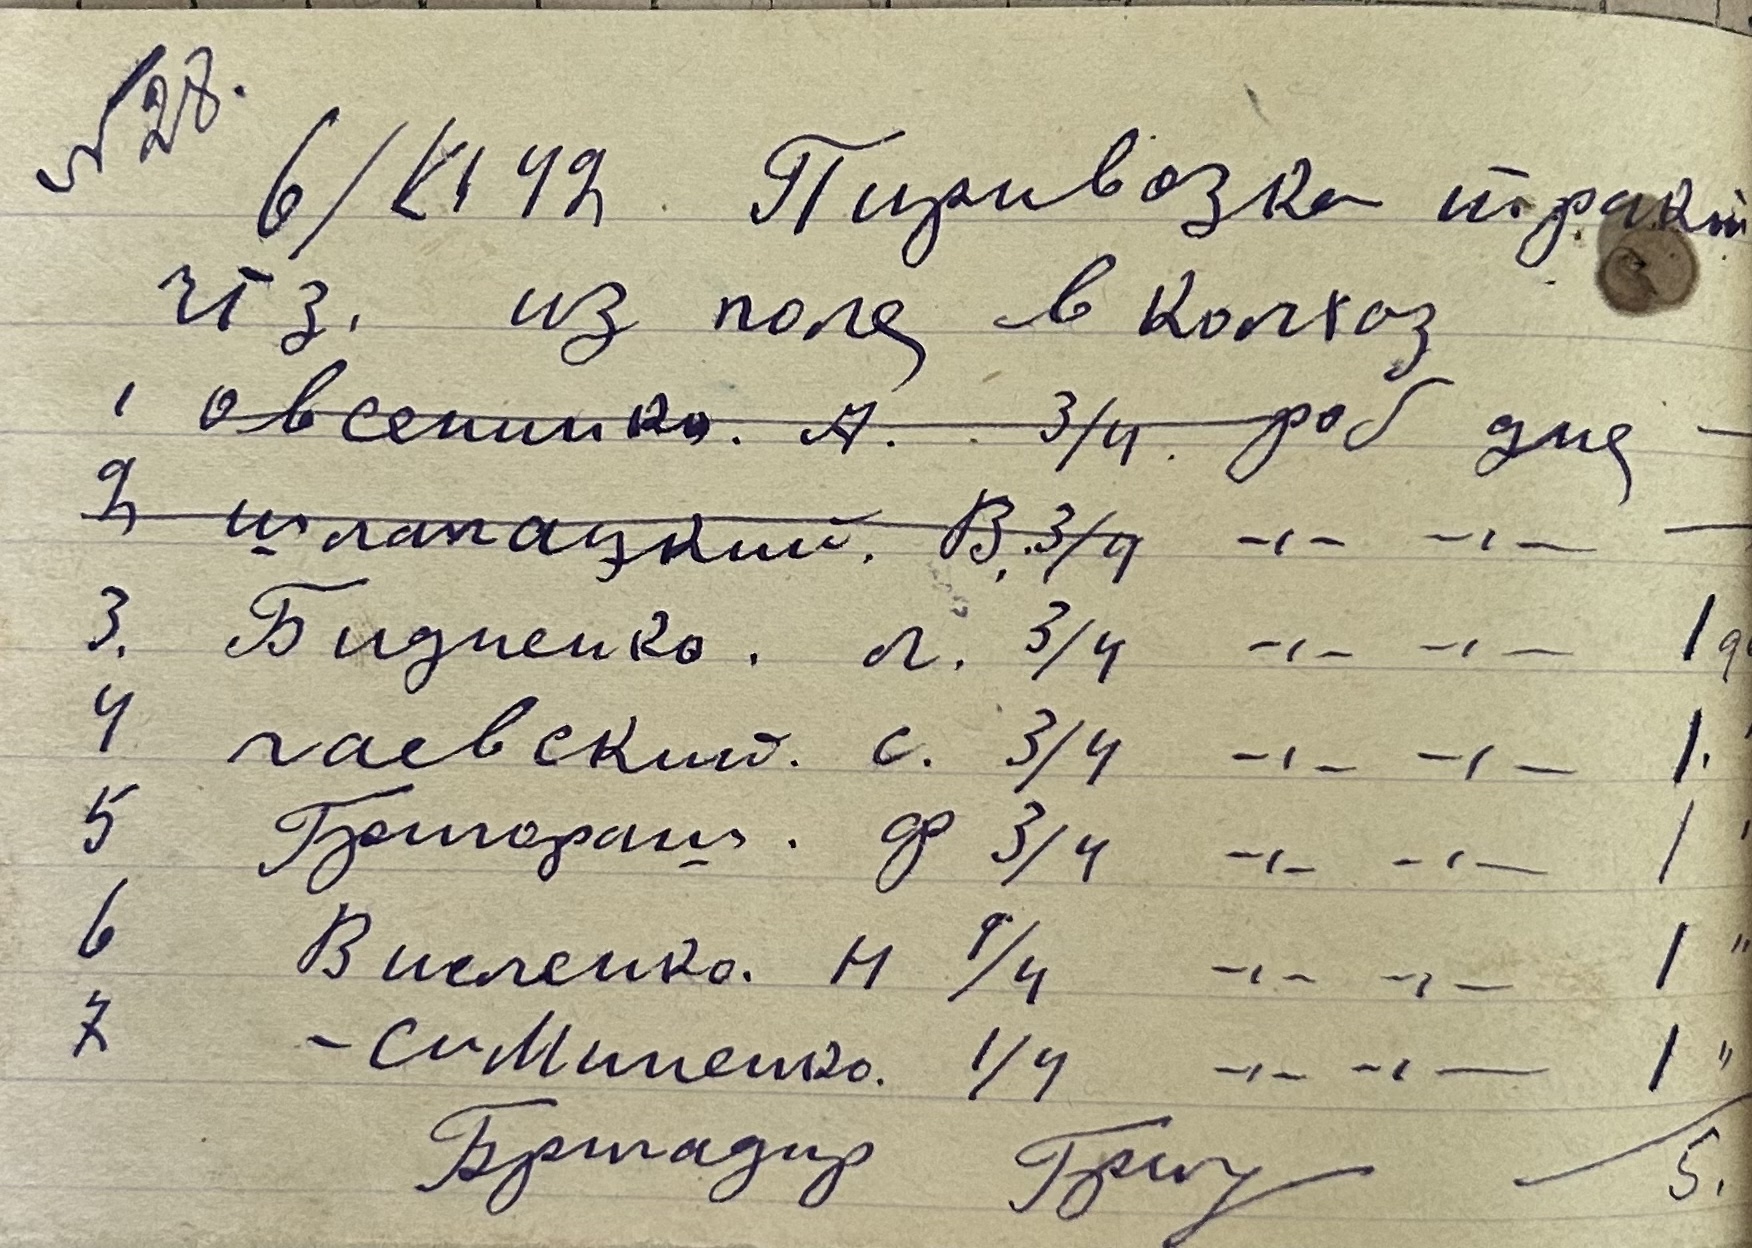 № 28.
6/XI 42 Пиривозка тракт
чтз. из поля в колхоз
1 Овсеиинко. А. 3/4. роб дня —
2 шлапацкий. В. 3/4 -"- -"- —
3. Бидненко. Л. 3/4 -"- -"- 1
4 гаевский. С. 3/4 -"- -"- 1. "
5 Григораш. Ф 3/4 -"- -"- 1 "
6 Н /4 -"- -"- 1 "
7 - СиМиненко. 1/4 -"- -"- 1 "
Бригадир 5.